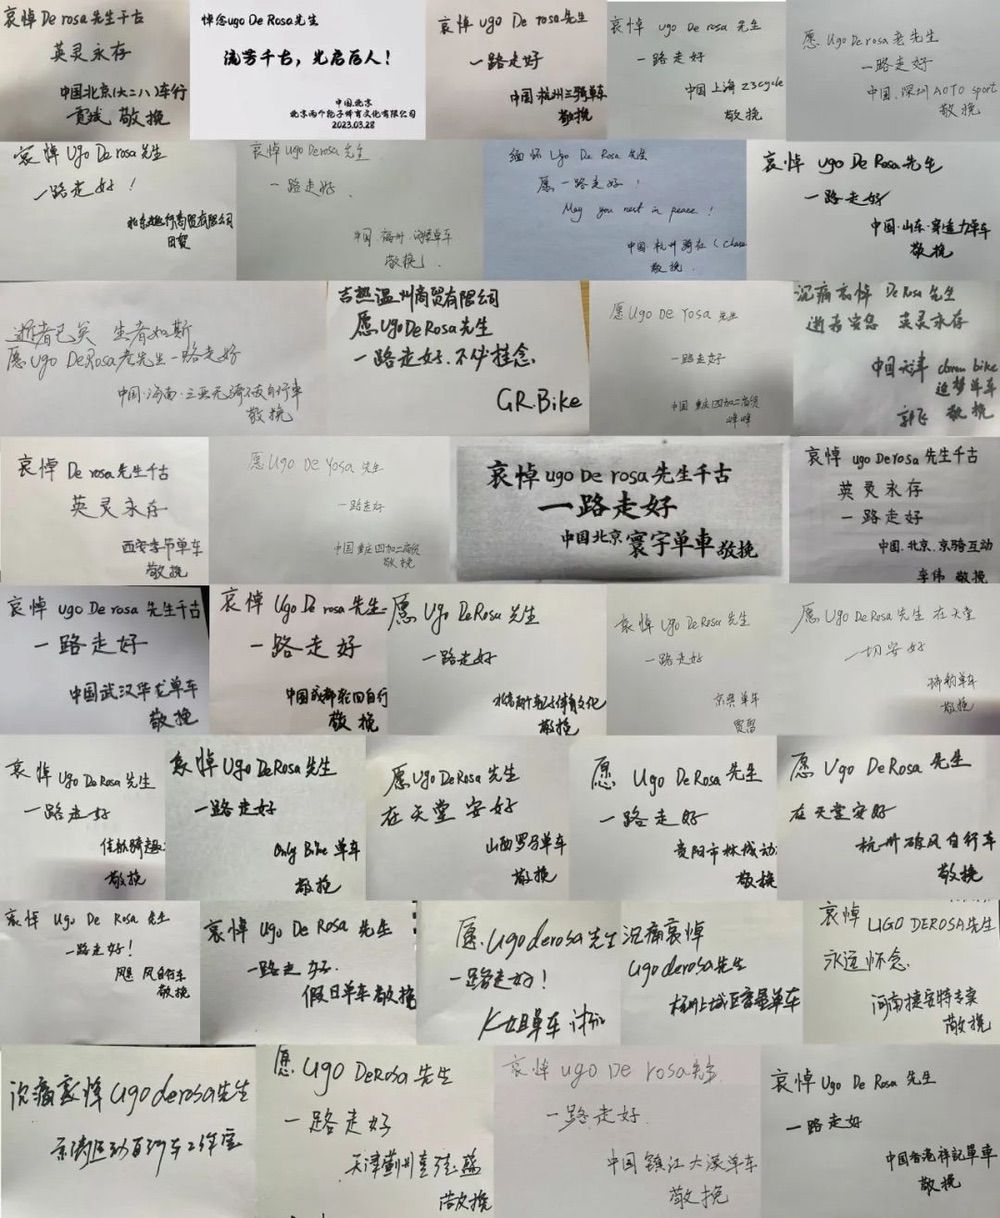 哀悼De rosa先生千古
英灵永存
中国北京(大二八)车行
敬挽
悼念ugo De Rosa先生
流芳千古，光启后人！
中国.北京
北京两个轮子体育文化有限公司
2023.03.28
哀悼 ugo De rosa先生
一路走好
中国.杭州三骑单车
敬挽
哀悼 ugo De rosa 先生
一路走好
中国上海 23cycle
敬挽
愿 Ugo De rosa 老先生
一路走好
中国.深圳 AOTO sport
敬挽
哀悼 Ugo De rosa 先生
一路走好！
哀悼 Ugo De rosa 先生
一路走好.
中国·福州·单车
敬挽
缅怀 Ugo De Rosa 先生
愿一路走好！
May you rest in peace！
中国·杭州骑在（Chase
敬挽.
哀悼 ugo De Rosa 先生
一路走好
中国·山东·穿越力单车
敬挽
逝者已矣 生者如斯
愿 Ugo DeRosa老先生一路走好
中国·海南·三亚无骑不友自行车
敬挽
吉热温州商贸有限公司
愿UgoDeRosa先生
一路走好.不必挂念.
GR.Bike
愿Ugo De rosa 先生
一路走好
中国 重庆四加二商贸
峰峰
沉痛哀悼 De Rosa 先生
逝者安息 英灵永存
中国天津
追梦单车
敬挽
哀悼 De rosa 先生千古
英灵永存
单车
敬挽
愿Ugo De rosa 先生
一路走好
中国重庆四加二商贸
敬挽
哀悼 ugo De rosa 先生千古
一路走好
中国北京 寰宇单車敬挽
哀悼 ugo De rosa 先生千古
英灵永存
一路走好
中国.北京.京骑互动
李伟 敬挽
哀悼 ugo De rosa 先生千古
一路走好
中国武汉华龙单车
敬挽
哀悼 Ugo De rosa 先生
一路走好
中国成都轮回自行
敬挽
愿 Ugo DeRosa 先生
一路走好
敬挽
哀悼 Ugo DeRosa 先生
一路走好
单车
愿 Ugo De Rosa 先生 在天堂
一切安好
单车
敬挽
哀悼 Ugo DeRosa 先生
一路走好
敬挽
哀悼 Ugo DeRosa 先生
一路走好
Only Bike 单车
敬挽
愿 Ugo DeRosa 先生
在天堂安好
山西罗马单车
敬挽
愿 Ugo DeRosa 先生
一路走好
贵阳市林城动
敬挽
愿 Ugo DeRosa 先生
在天堂安好
杭州破风自行车
敬挽
哀悼 Ugo De Rosa 先生
一路走好！
风自行车
敬挽
哀悼 Ugo De Rosa 先生
一路走好.
假日单车敬挽
愿.Ugo derosa先生
一路走好！
K姐单车
沉痛哀悼
Ugo derosa先生
哀悼 UGO DEROSA先生
永远怀念.
河南捷安特专卖
敬挽
沉痛哀悼 Ugo derosa先生
愿 Ugo DeRosa 先生
一路走好
敬挽
哀悼 ugo De rosa先生
一路走好.
中国镇江大漠单车
敬挽
哀悼 Ugo De Rosa 先生
一路走好
中国香港祥記單車
敬挽